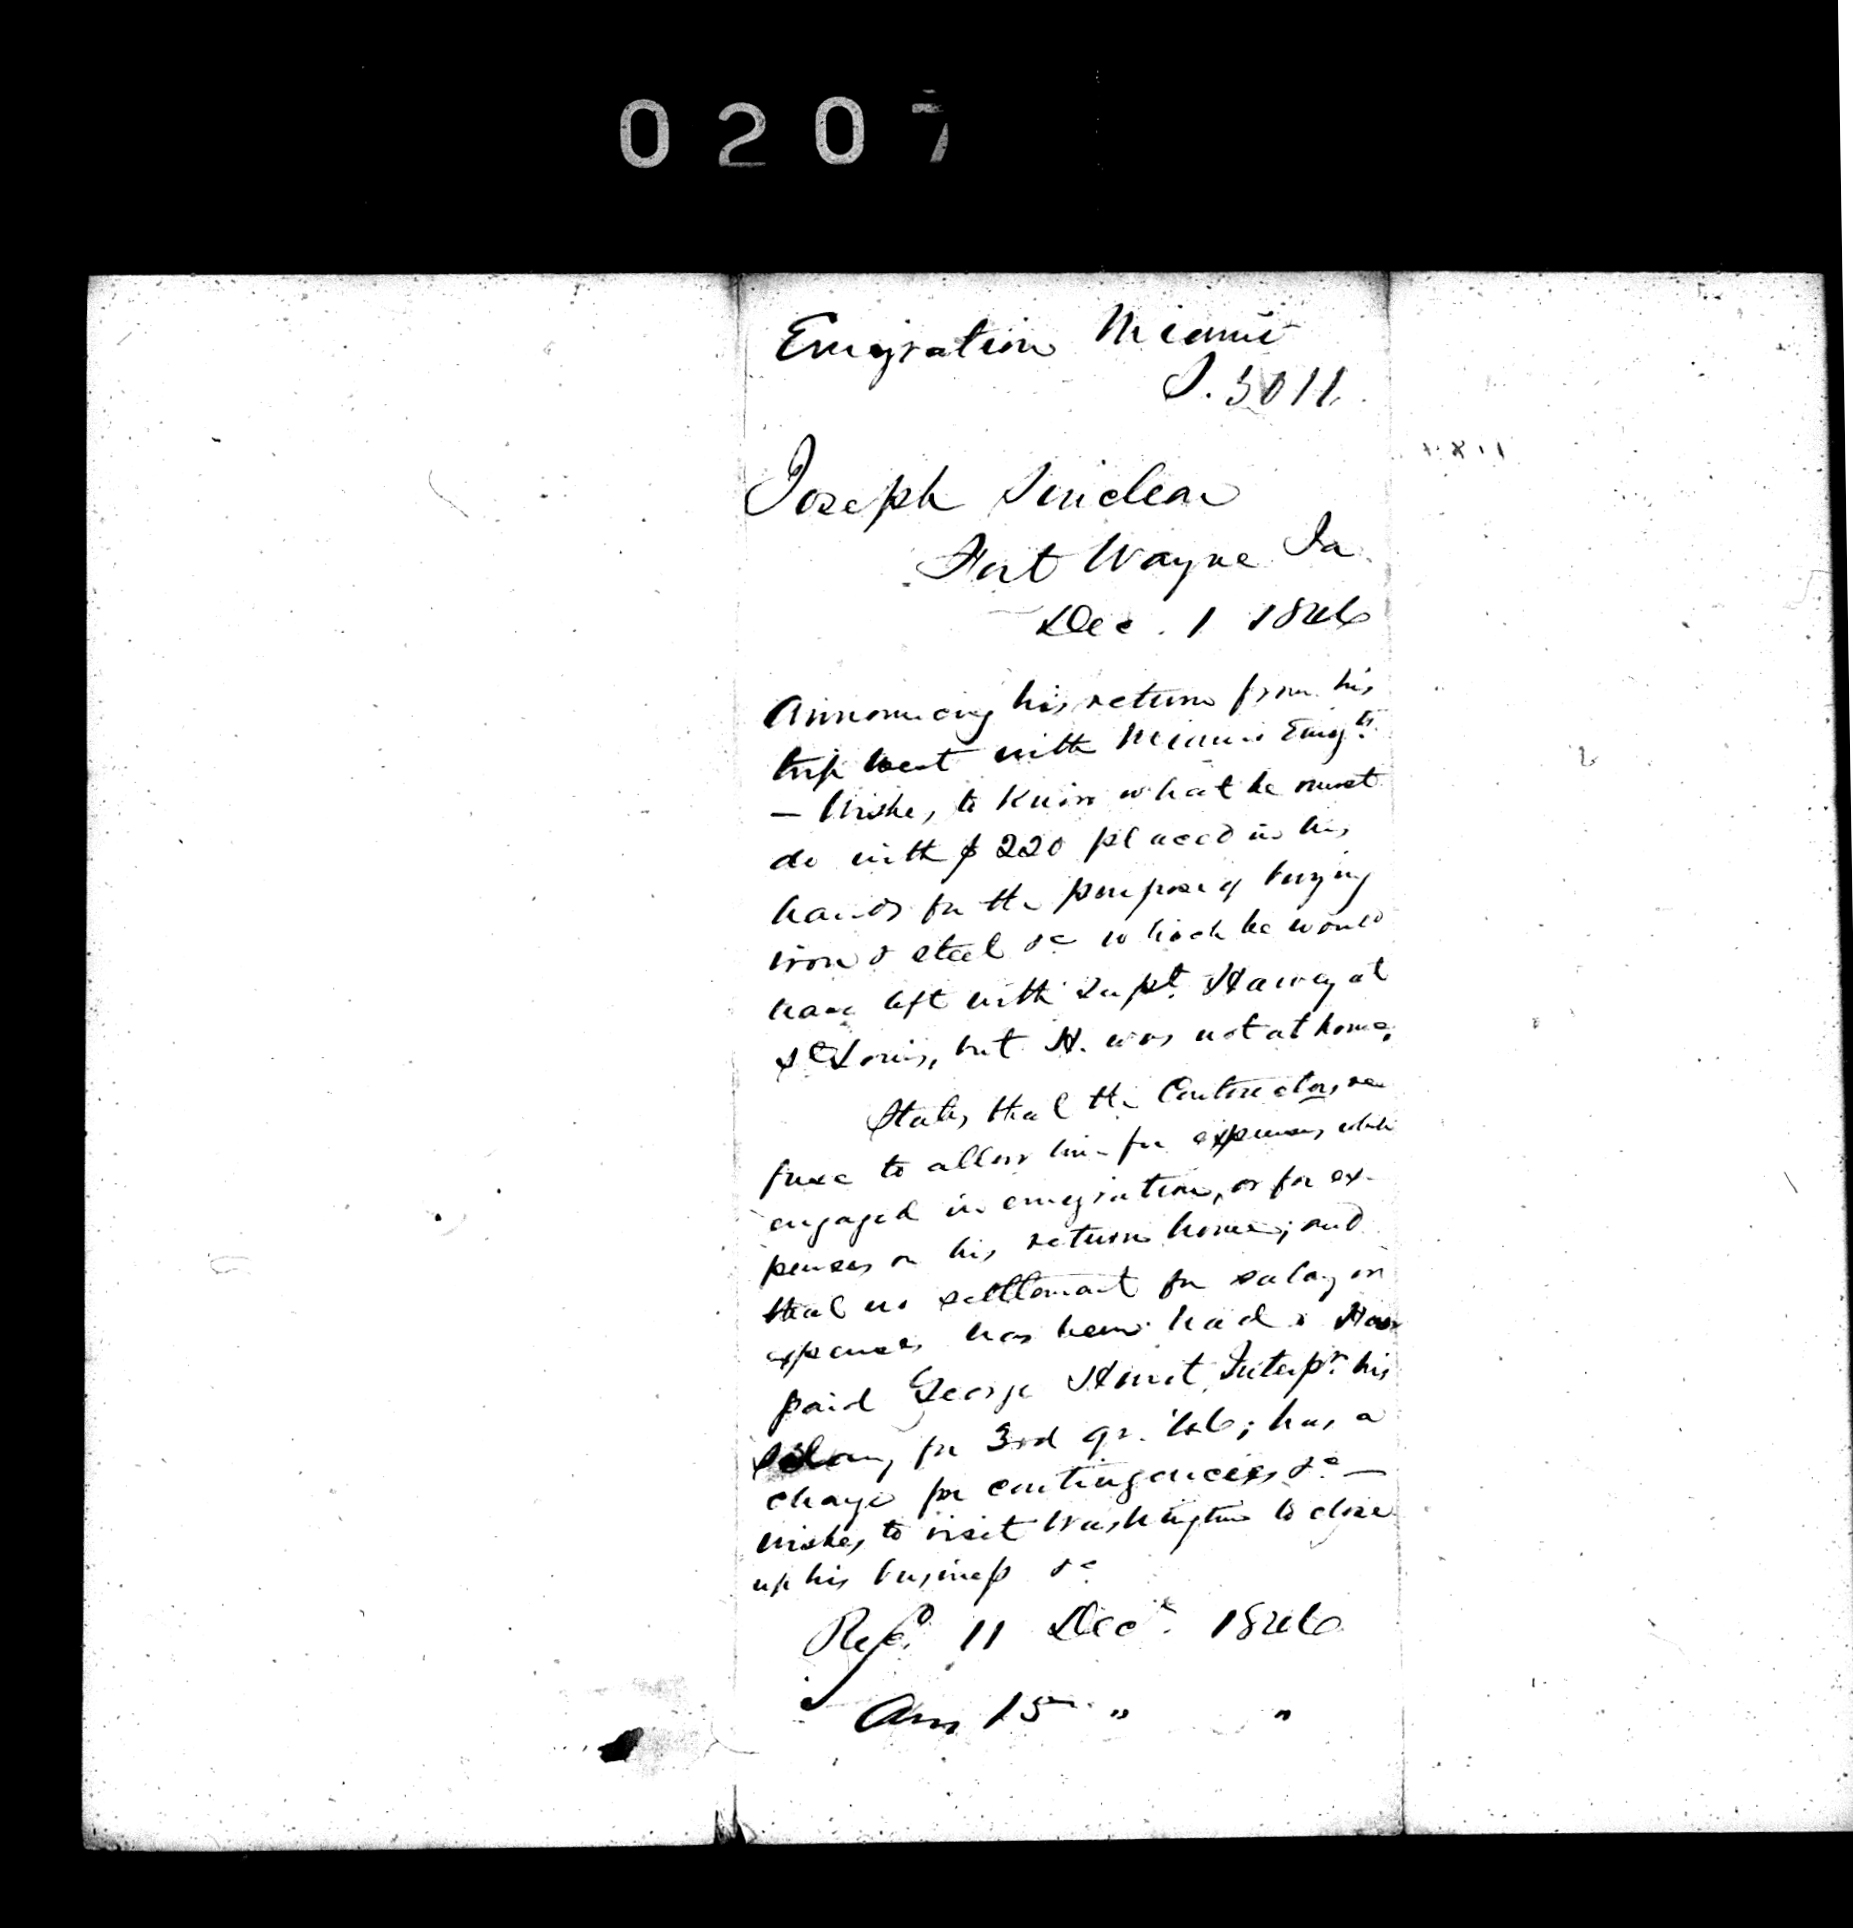 0207
Emigration Miami
S. 3011.
Joseph Sinclear
Fort Wayne Ia.
Dec. 1 1846
Announcing his return from his
trip west with Miami Emigts.
— Wishes to know what he must
do with $220 placed in his
hands for the purpose of buying
iron & steel &c which he would
have left with Supt. Harvey at
St Louis, but H. was not at home.
States that the Contractors re
fuse to allow him for expenses while
engaged in emigration, or for ex-
penses on his return home; and
that no settlement for salary or
expenses has been had. Has
paid George Hunt, Interpr. his
salary for 3rd qr. '46; has a
charge for contingencies &c —
wishes to visit Washington to close
up his business &c
Recd. 11 Decr. 1846
Ans 15 " "